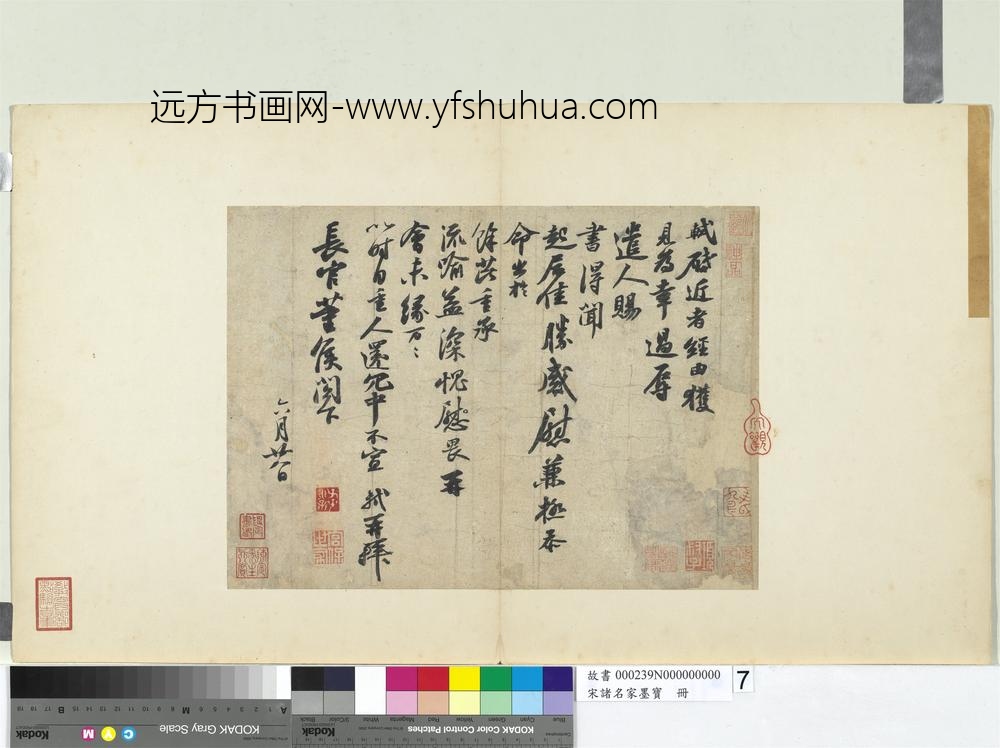 远方书画网-www.yfshuhua.com
軾啓近者經由獲
見為幸過辱
遣人賜
書得聞
起居佳勝感慰兼極忝
命出於
餘芘重承
流喻益深愧畏再
會未緣万〻
以時自重人還冗中不宣 軾再拜
長官董侯閣下
六月廿八日
故書 000239N000000000
宋諸名家墨寶 冊
7
Kodak
C
Y
M
KODAK Gray Scale
A 1 2 3 4 5 6 M 8 9 10 11 12 13 14 15 B 17 18 19
Kodak
KODAK Color Control Patches
Blue
Cyan
Green
Yellow
Red
Magenta
White
3/Color
Black